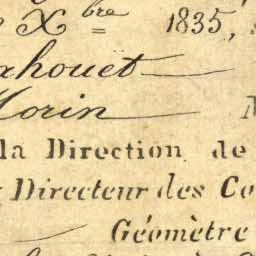 Xbre = 1835,
ahouet
Morin
la Direction de
Directeur des Co
Géomètre